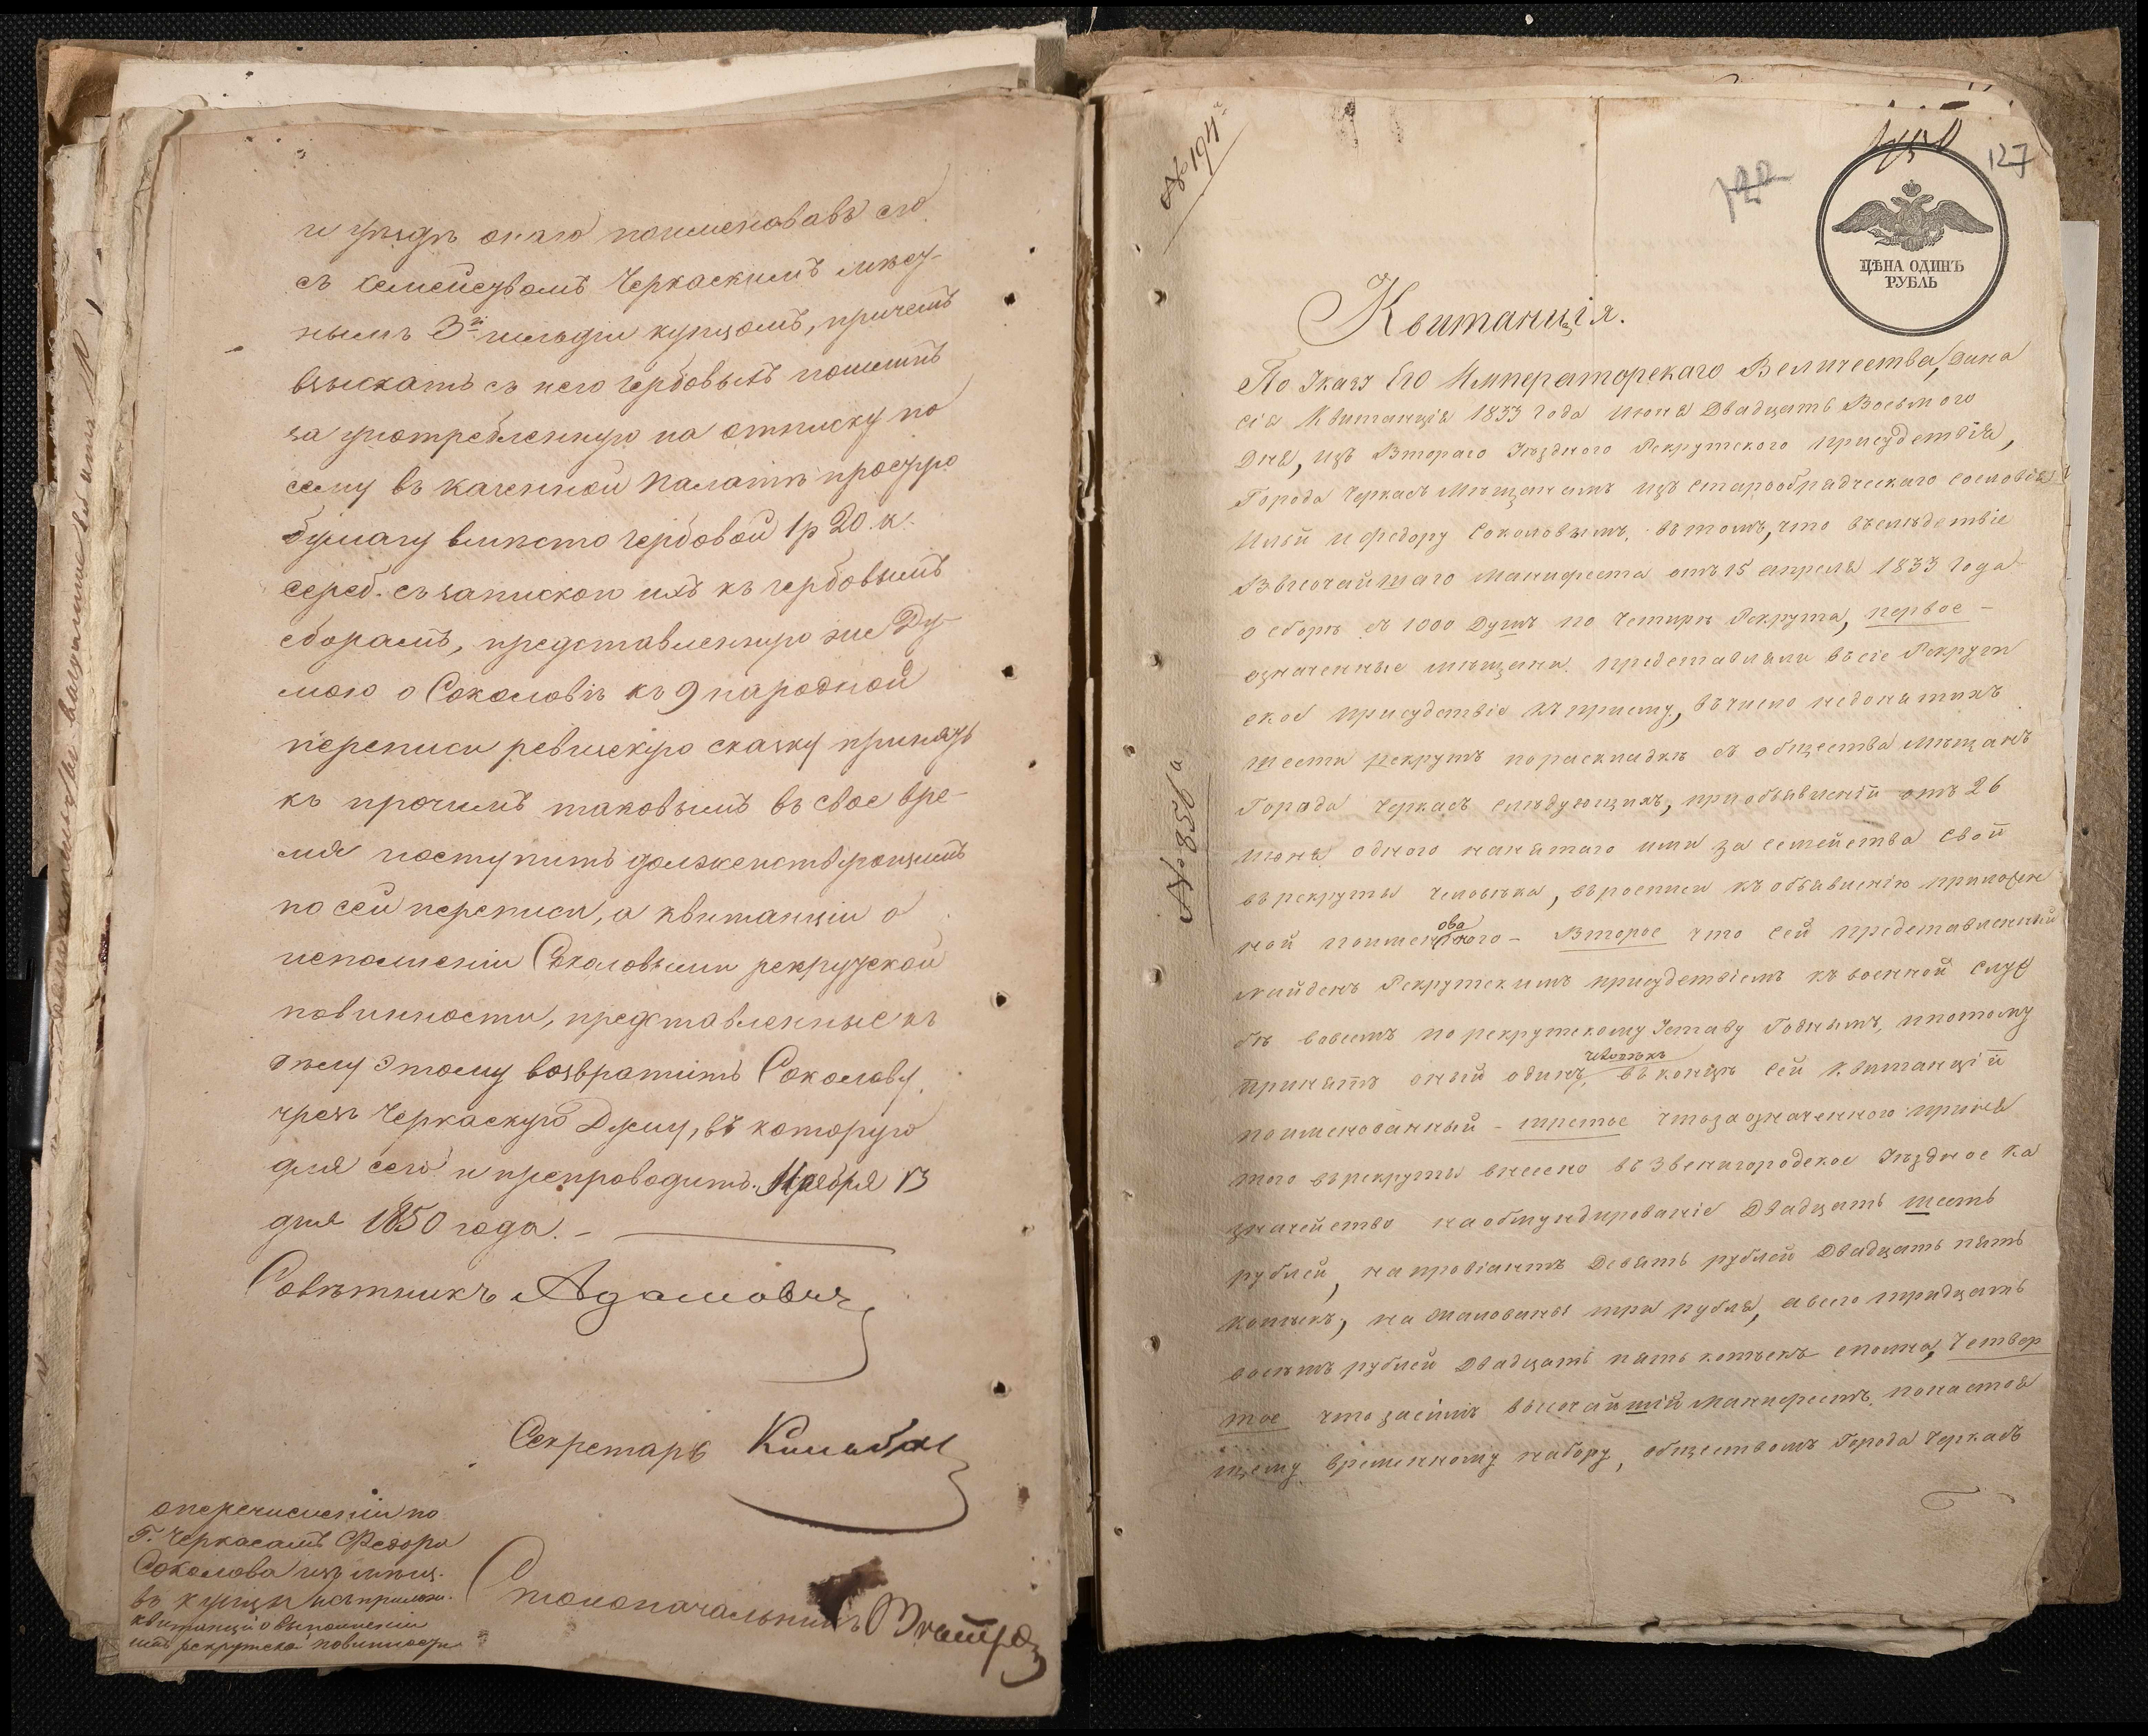 и уѣздъ онаго поименовавъ его
съ семействомъ Черкаскимъ мѣст-
нымъ 3й гильдіи купцомъ, причемъ
взыскать съ него гербовыхъ пошлинъ
за употребленную на отписку по
сему въ казенной палатѣ простую
бумагу вмѣсто гербовой 1 р 20. к.
сереб. съ запискою ихъ къ гербовымъ
сборамъ, представленную же Ду-
мою о Соколовѣ къ 9 народной
переписи ревискую сказку принять
къ прочимъ таковымъ въ свое вре-
мя поступить долженствующимъ
по сей переписи, а квитанціи о
исполненіи Соколовыми рекрутской
повинности, представленные къ
дѣлу этому возвратить Соколову
чрезъ Черкаскую Думу, въ которую
для сего и препроводить. Ноября 13
дня 1850 года. -
Совѣтникъ Адамовичъ
Секретарь
о перечисленіи по
Г. Черкасамъ Федора
Соколова изъ мѣщ.
въ купцы и съ прилож.
квитанціи о выполненіи
имъ рекрутской повинности
Столоначальникъ
№ 194й
127
ЦѢНА ОДИНЪ
РУБЛЬ
Квитанція.
По Указу Его Императорскаго Величества, Дина
сія Квитанція 1833 года Июня Двадцать Восьмого
Дня, изъ Втораго Уѣздного Рекрутского Присудствія,
Города Черкасъ Мещанамъ изъ Старообрадческаго сословія
Ильи и Федору Соколовымъ, въ томъ, что въ слѣдствіе
Высочайшаго Манифеста отъ 15 апреля 1833 Года
о сборѣ съ 1000 Душъ по Четыри Рекрута, первое -
означенные мѣщани представляли въ сіе Рекрут
ское присудствіе къ приему, въ число недонятихъ
шести рекрутъ по раскладкѣ съ общества Мещанъ
Города Черкасъ слѣдующихъ, при обьявленіи отъ 26
июня одного нанятаго ими за семейства свои
въ рекруты человѣка, въ росписи къ обьявленію приложен
ова
ной поименного - Второе что сей представленный
№ 8561а
найденъ Рекрутскимъ присудствіемъ къ военной служ
бѣ вовсемъ по рекрутскому Уставу Годнымъ, и потому
человѣкъ
принятъ оный одинъ, въ концѣ сей квитанціи
поименованный - третье что за означенного приня
того въ рекруты внесено въ Звенигородское Уѣздное Ка
значейство на обмундированіе Двадцать шесть
рублей, на провіантъ Девять рублей Двадцать пять
копѣекъ, на жалованья три рубля, а всего тридцать
восемъ рублей Двадцать пять копѣекъ сполна, Четвер
тое что засимъ высочайшій манифестъ, по настоя
щему временному набору, обществомъ Города Черкасъ